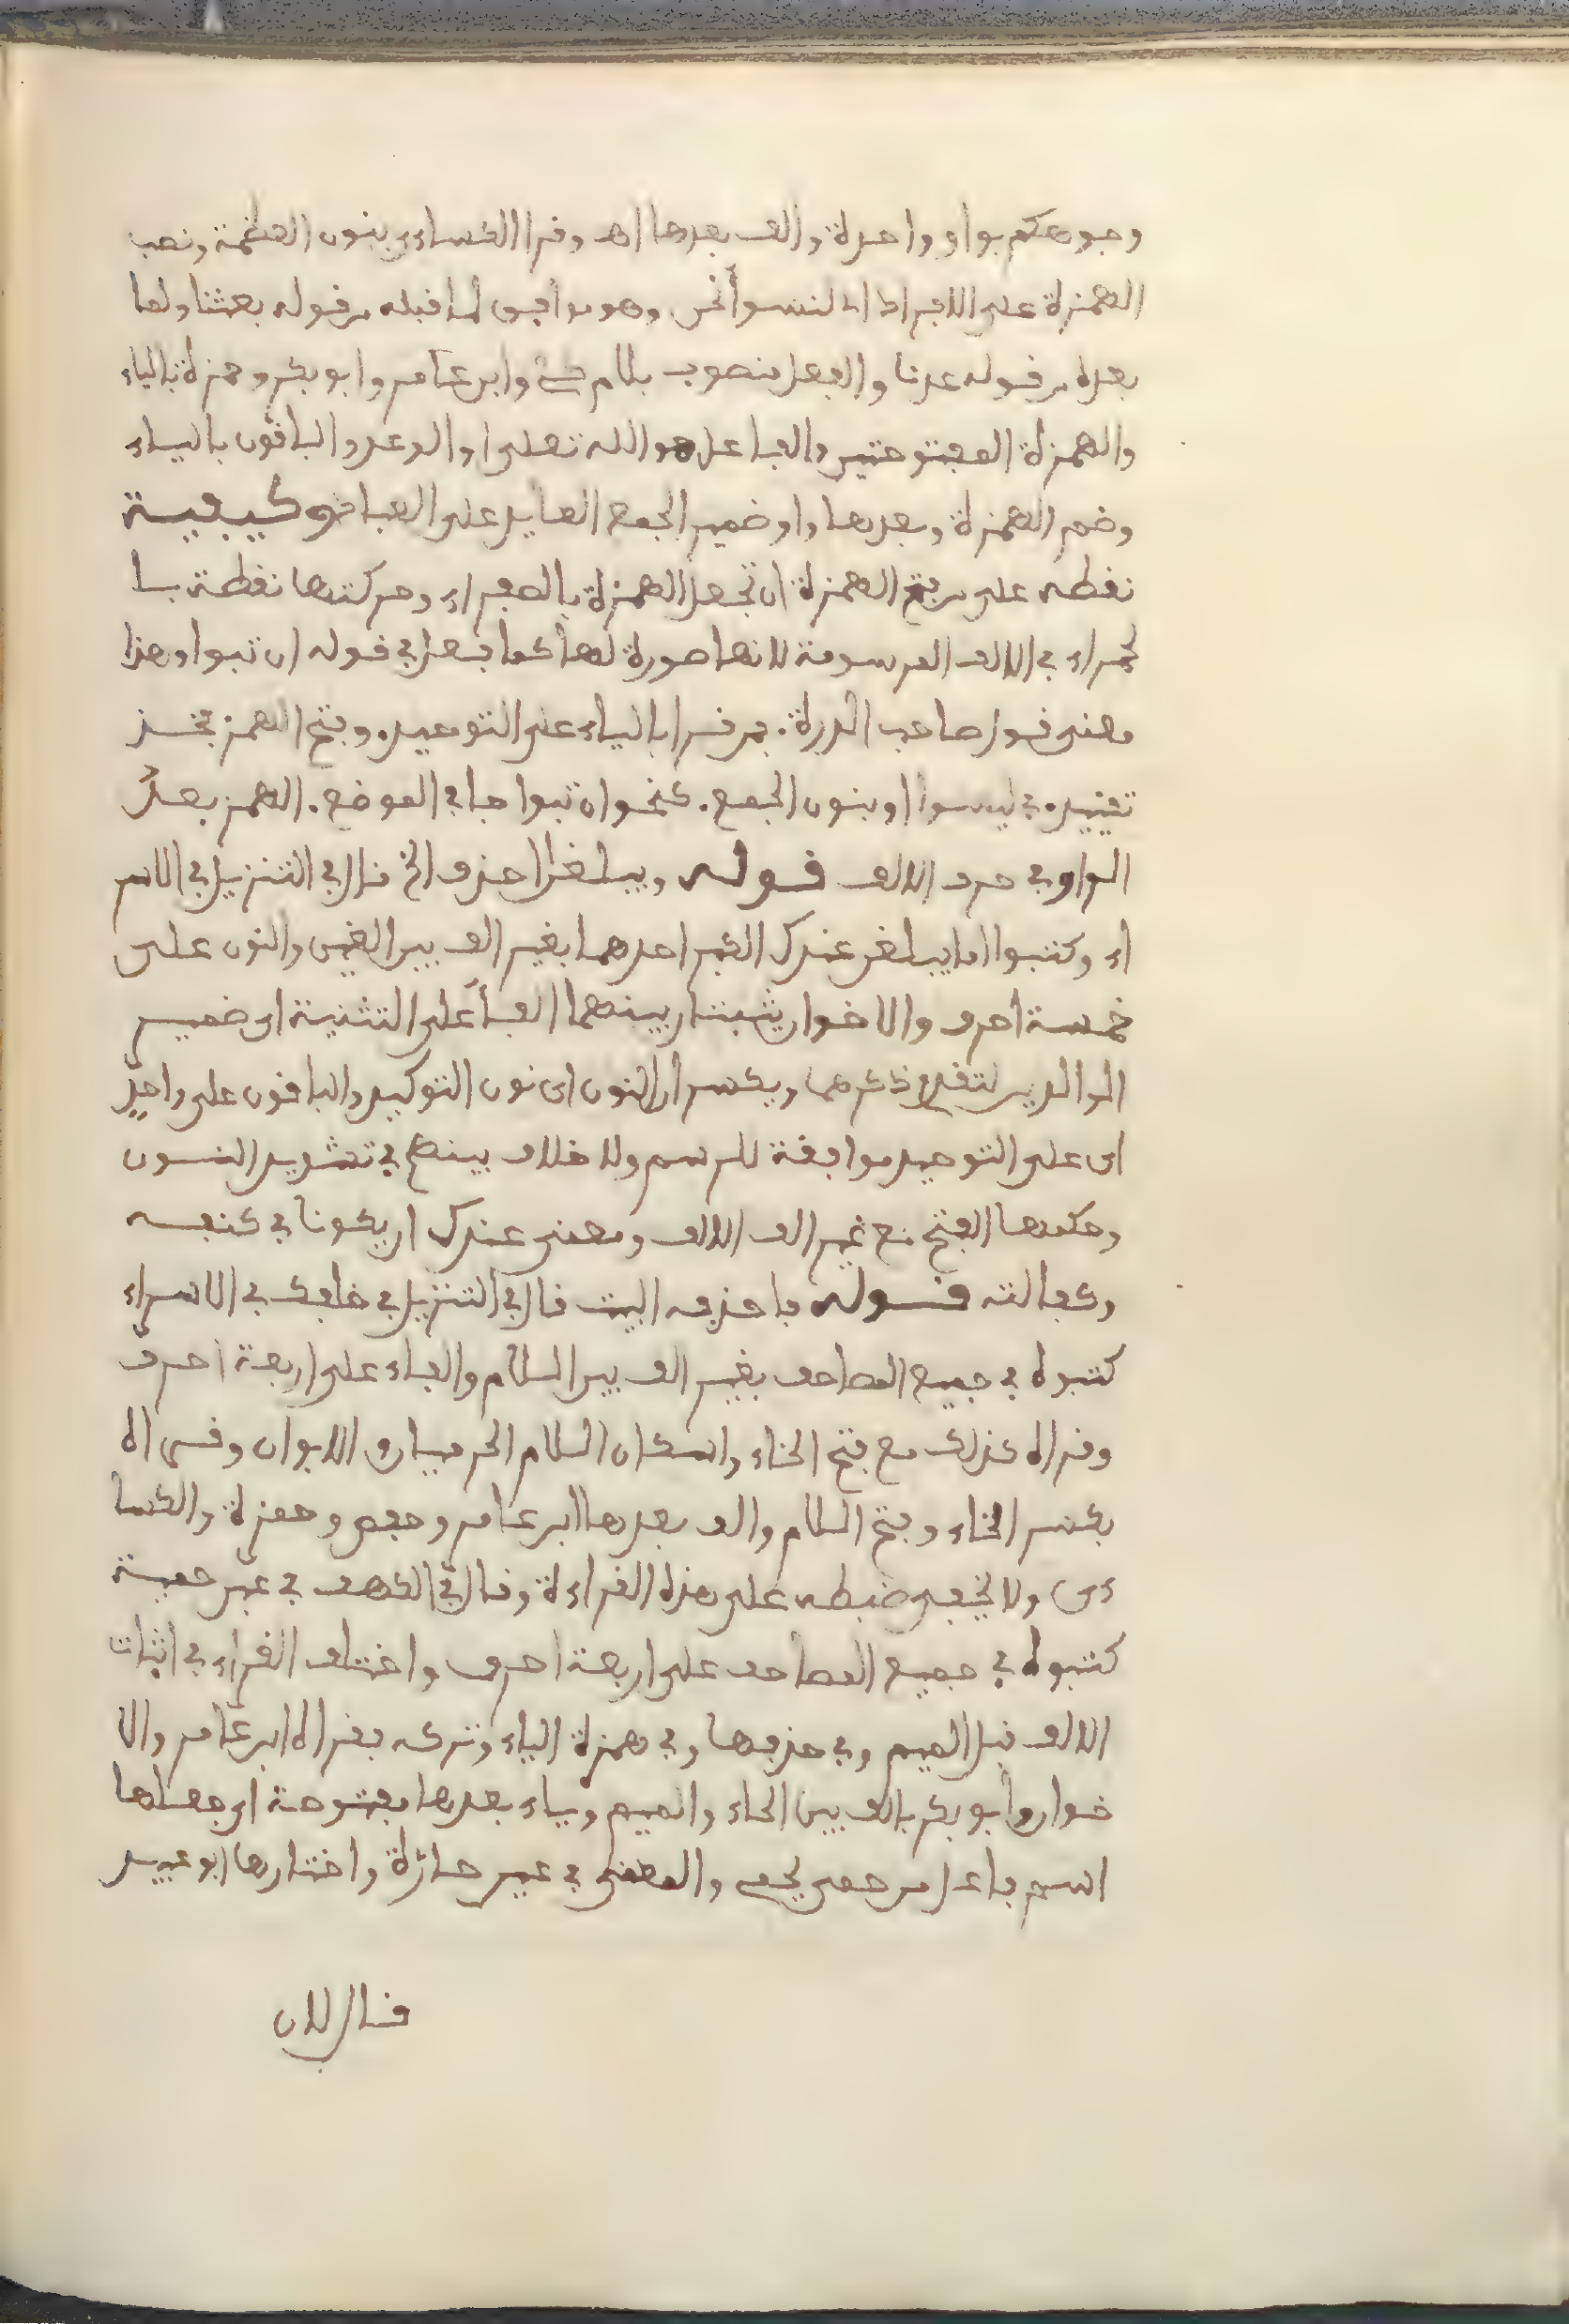 وجوهكم بواو واحدة والف بعدها اهـ وقرا الكساءي بنون العظمة ونصب
الهمزة على الافراد اى لنسوأ نحن وهو موافق لما قبله من قوله بعثنا ولما
بعده من قوله عدنا والفعل منصوب بلام كي وابن عامر وابو بكر وحمزة بالياء
والهمزة المفتوحتين والفاعل هو الله تعلى او الوعد والباقون بالياء
وضم الهمزة وبعدها واو ضمير الجمع العايد على العباد وكيفية
نقطه على من فتح الهمزة ان تجعل الهمزة بالصفراء وحركتها نقطة با
لحمراء في الالف المرسومة لانها صورة لها كما فعل في قوله ان تبوا وهذا
معنى قول صاحب الدرة. من قرا بالياء على التوحيد. وفتح الهمز فخذ
تقييد. في ليسوا او بنون الجمع. كنحو ان تبوا جا في الموضع. الهمز بعد
الواو في حرف الالف قوله ويبلغن احذف الخ قال في التنزيل في الاسر
اء وكتبوا اما يبلغن عندك الكبر احدهما بغير الف بين الغين والنون على
خمسة احرف والاخوان يثبتان بينهما الفاً على التثنية اى ضمير
الوالدين لتقدم ذكرهما ويكسران النون اى نون التوكيد والباقون على واحد
اى على التوحيد موافقة للرسم ولا خلاف بينهم في تشديد النون
وحكمها الفتح مع غير الف الالف ومعنى عندك ان يكونا في كنفه
وكفالته قوله فاحذفه البيت قال في التنزيل في خلفك في الاسراء
كتبوه في جميع المصاحف بغير الف بين اللام والفاء على اربعة احرف
وقراه كذلك مع فتح الخاء واسكان اللام الحرميان والابوان وقراه
بكسر الخاء وفتح اللام والف بعدها ابن عامر وحفص وحمزة والكسا
ءى ولا يخفى ضبطه على هذه القراءة وقال في الكهف في عين حمية
كتبوه في جميع المصاحف على اربعة احرف واختلف القراء في اثبات
الالف قبل الميم وفي حذفها وفي همزة الياء وتركه فقراه ابن عامر والا
خوان وابو بكر بالف بين الحاء والميم وياء بعدها مفتوحة اى جعلها
اسم فاعل من حمى يحمى والمعنى في عين حارة واختارها ابو عبيد
قال لان